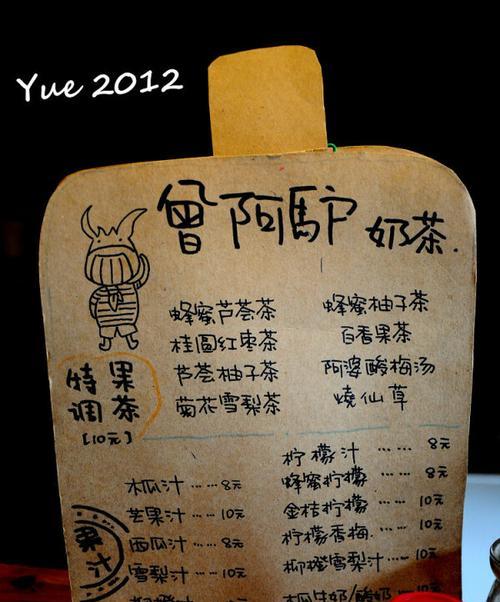 Yue 2012
曾阿驢 奶茶.
特 果
调 茶
[10元]
蜂蜜芦荟茶
桂圆红枣茶
芦荟柚子茶
菊花雪梨茶
蜂蜜柚子茶
百香果茶
阿婆酸梅汤
燒仙草
果汁
木瓜汁 …… 8元
芒果汁 …… 10元
西瓜汁 …… 8元
雪梨汁 …… 10元
柠檬汁 …… 8元
蜂蜜柠檬 …… 8元
金桔柠檬 …… 10元
柠檬香梅 …… 10元
柳橙雪梨汁 …… 10元
木瓜牛奶/酸奶 … 10元